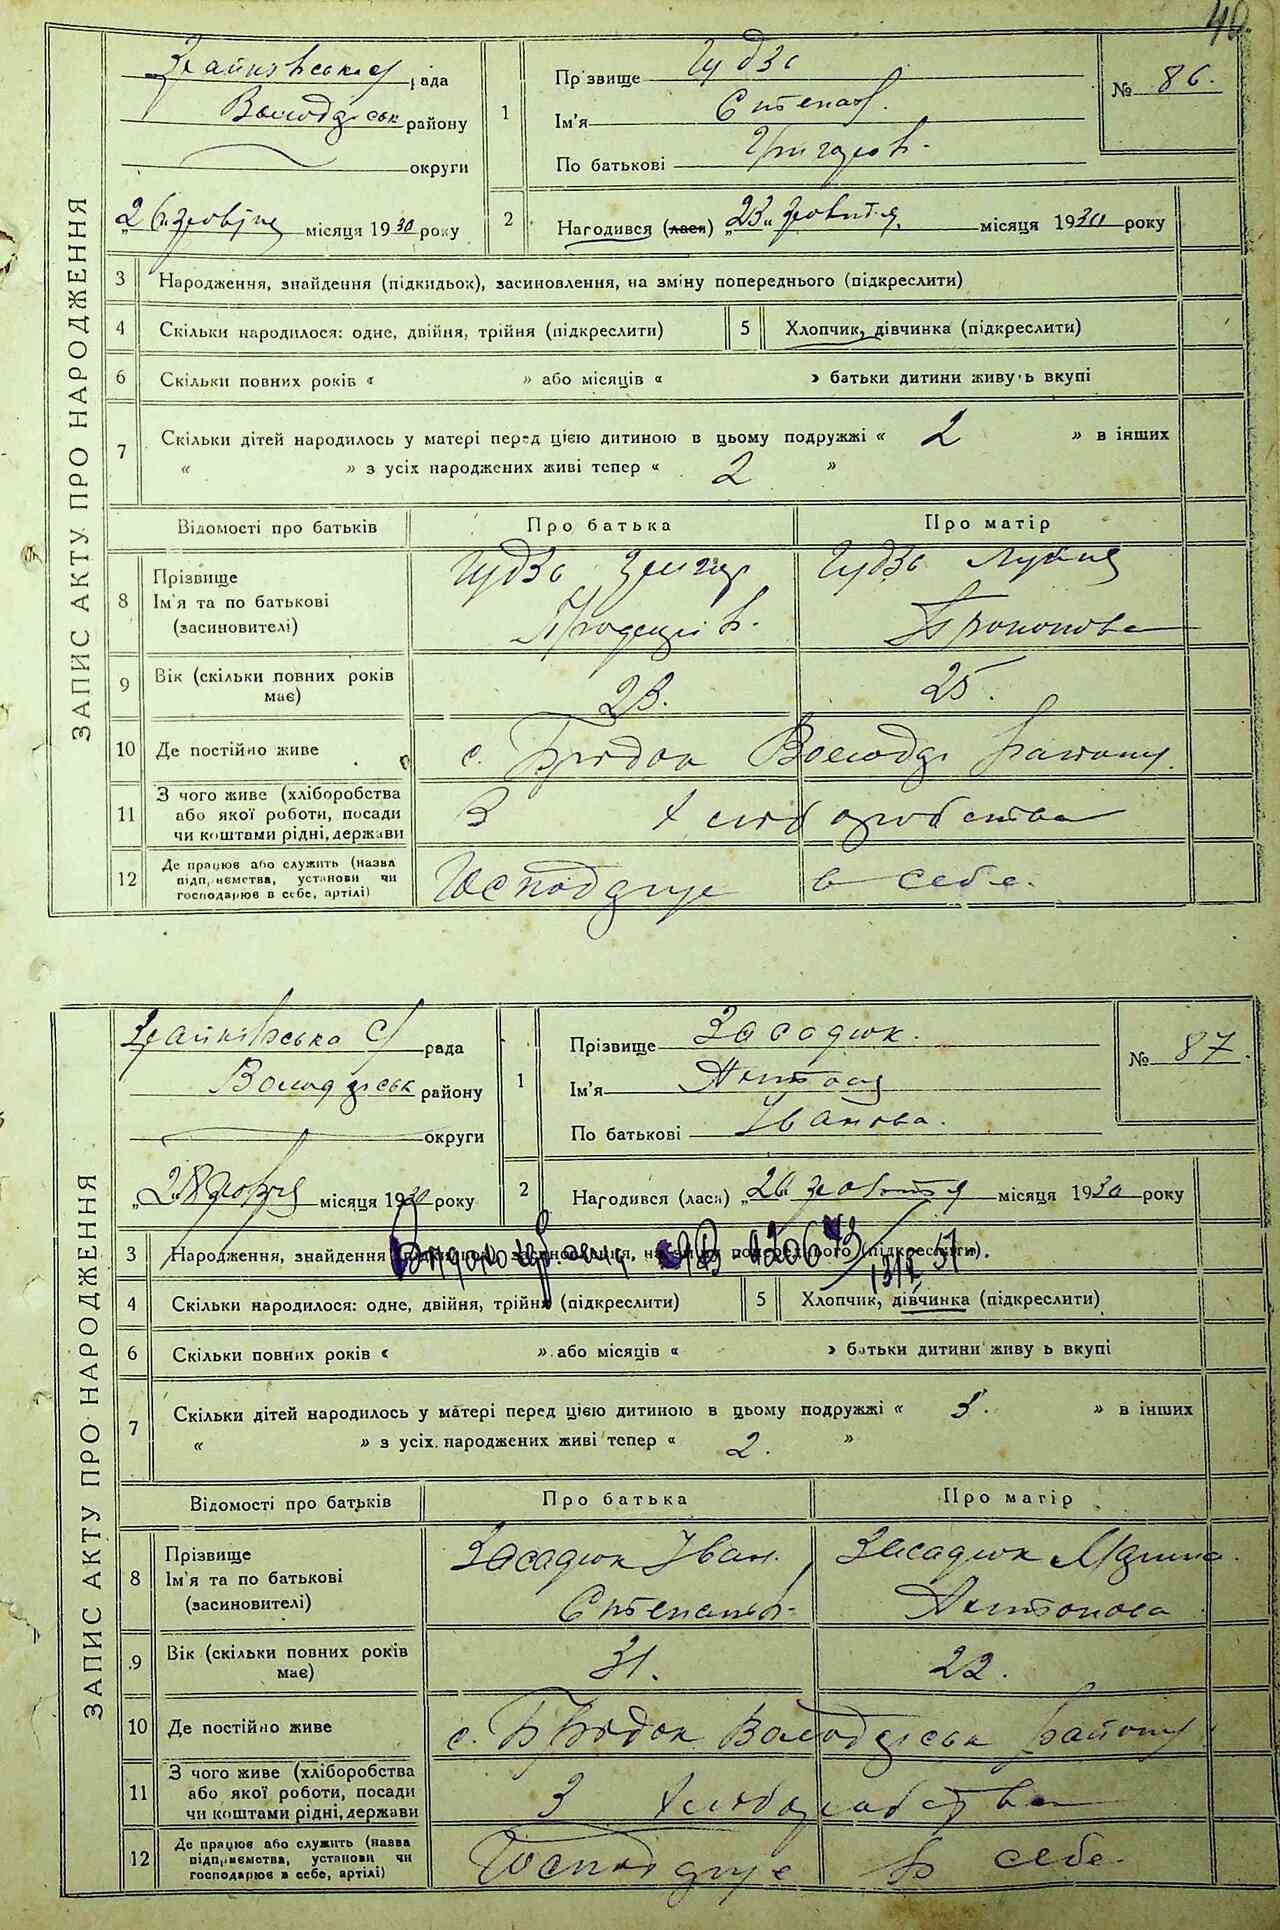 40
ЗАПИС АКТУ ПРО НАРОДЖЕННЯ
рада
району
округи
"26" жовтня місяця 1930 року
1
Прізвище Гудзь
Ім'я Степан
По батькові Григоров.
№ 86.
2
Народився (лася) "23" жовтня місяця 1930 року
3 Народження, знайдення (підкидьок), засиновлення, на зміну попереднього (підкреслити)
4 Скільки народилося: одне, двійня, трійня (підкреслити)
5 Хлопчик, дівчинка (підкреслити)
6 Скільки повних років « » або місяців « » батьки дитини живуть вкупі
7 Скільки дітей народилось у матері перед цією дитиною в цьому подружжі « 2 » в інших
« » з усіх народжених живі тепер « 2 »
Відомості про батьків Про батька Про матір
8 Прізвище
Ім'я та по батькові
(засиновителі)
Гудзь
Гудзь
Прокопова
9 Вік (скільки повних років має)
23. 25.
10 Де постійно живе
с. Брідок Володар району
11 З чого живе (хліборобства
або якої роботи, посади
чи коштами рідні, держави
З хліборобства
12 Де працює або служить (назва
підприємства, установи чи
господарює в себе, артілі)
Господарує в себе.
ЗАПИС АКТУ ПРО НАРОДЖЕННЯ
рада
Володарськ району
округи
"28" жовтня місяця 1930 року
1
Прізвище Засадюк.
Ім'я
По батькові Іванова.
№ 87.
2
Народився (лася) "26" жовтня місяця 1930 року
3 Народження, знайдення (підкидьок), засиновлення, на зміну попереднього (підкреслити).
4 Скільки народилося: одне, двійня, трійня (підкреслити)
5 Хлопчик, дівчинка (підкреслити)
6 Скільки повних років « » або місяців « » батьки дитини живуть вкупі
7 Скільки дітей народилось у матері перед цією дитиною в цьому подружжі « 3. » в інших
« » з усіх народжених живі тепер « 2. »
Відомості про батьків Про батька Про матір
8 Прізвище
Ім'я та по батькові
(засиновителі)
Засадюк Іван. Засадюк
Степанов. Антонова
9 Вік (скільки повних років має)
31. 22.
10 Де постійно живе
с. Брідок Володарськ району
11 З чого живе (хліборобства
або якої роботи, посади
чи коштами рідні, держави
З хліборобства
12 Де працює або служить (назва
підприємства, установи чи
господарює в себе, артілі)
Господарує в себе.